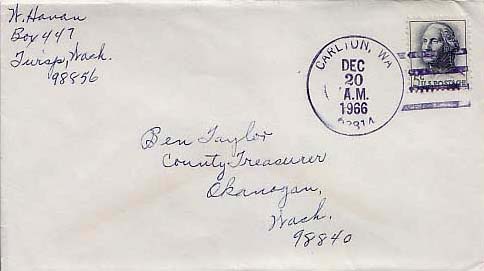 W. Havan
Box 447
Twisp, Wash.
98856
CARLTON, WA
DEC
20
A.M.
1966
U.S. POSTAGE
Ben Taylor
County Treasurer
Okanogan,
Wash.
98840